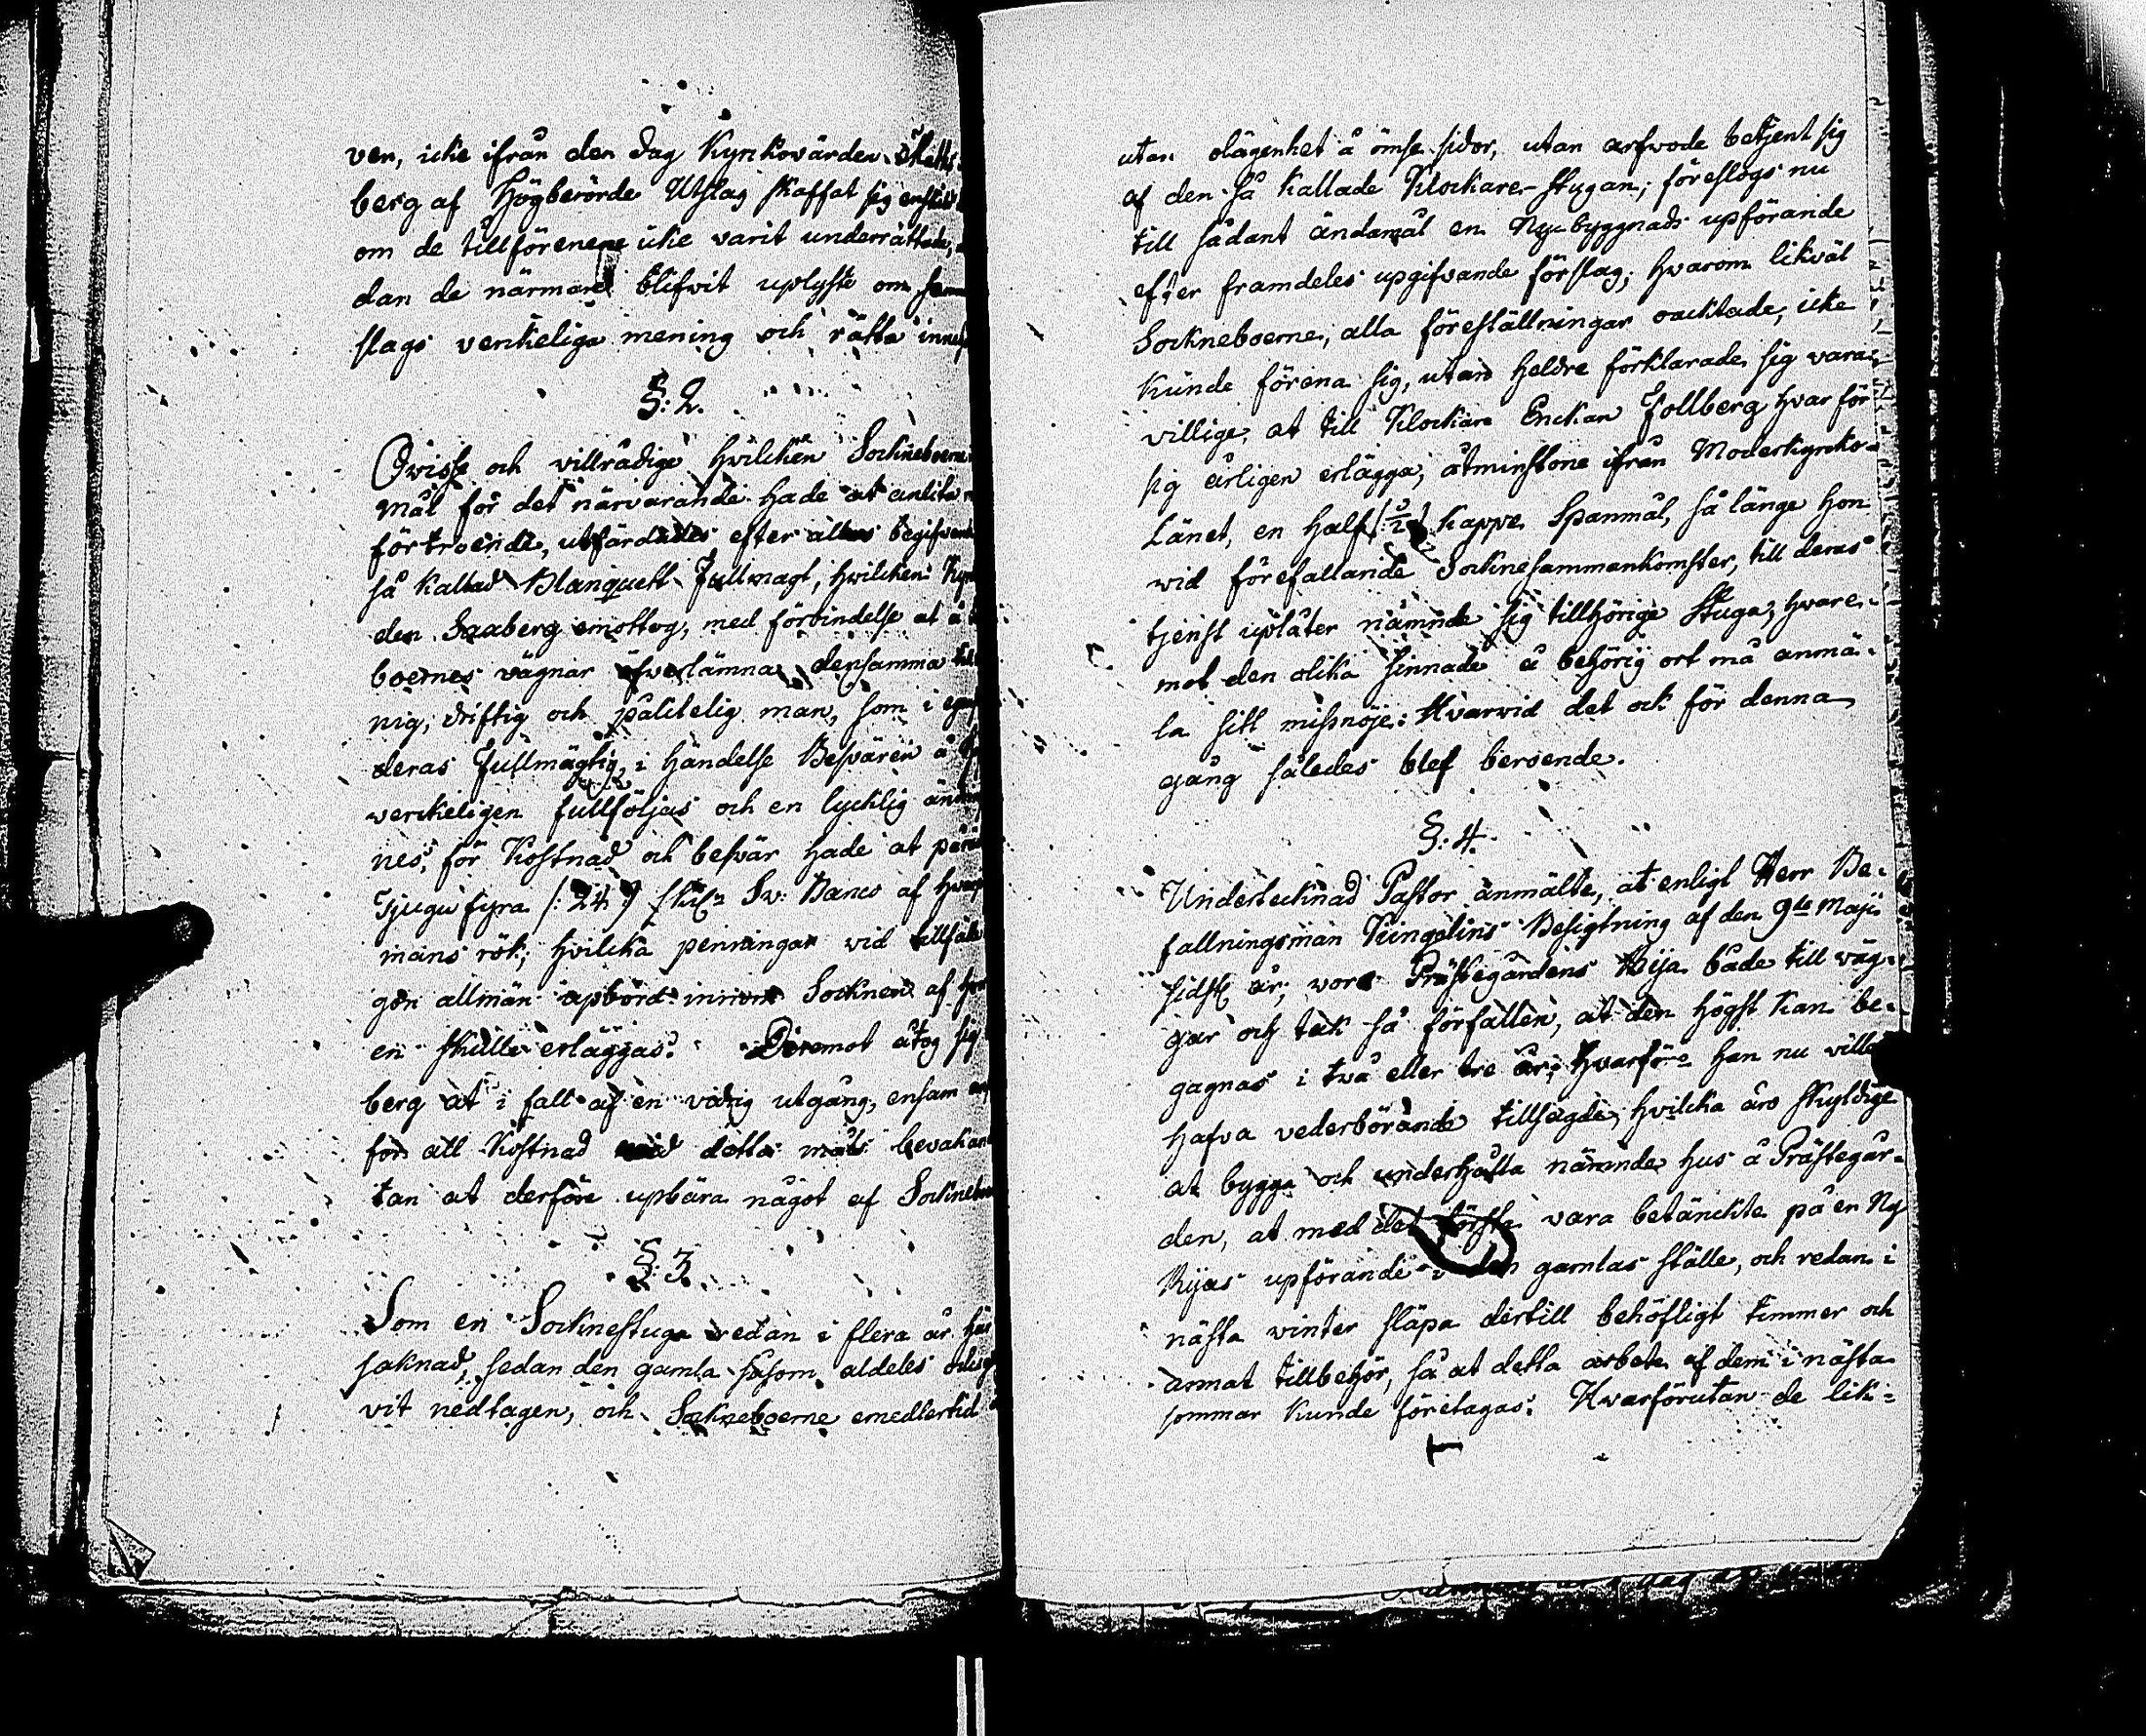 ven, icke ifrån den dag Kyrkovärden
berg af Högberörde Utslag skaffat sig
om de tillförenene icke varit underrättade,
dan de närmare blifvit uplyste om
slags verkeliga mening och rätta
§: 2.
Ovisse och villrådige hvilcken Sockneboerne
mål för det närvarande hade at anlita
förtroende, utfärdades efter allas
så kallad Blanquett Fullmagt, hvilcken
den Saaberg emottog, med förbindelse at å
boernes vägnar öfverlämna densamma
nig, driftig och pålitelig man, som i
deras Fullmägtig, i händelse Besvären
verkeligen fullföljas och en lycklig
nes, för Kostnad och besvär hade at
Tjugu fyra /: 24 :/ skill: Sv: Banco af
mans rök, hvilcka penningar vid
gon allmän upbörd innom Socknen af
en skulle erläggas. Deremot åtog sig
berg at i fall af en vidrig utgång, ensam
för all Kostnad vid detta måls
tan at derföre upbära något af
§: 3.
Som en Socknestuga redan i flera år
saknad, sedan den gamla såsom aldeles
vit nedtagen, och Sockneboerne emedlertid
utan olägenhet å ömse sidor, utan arfwode betjent sig
af den så kallade Klockare-stugan; föreslogs nu
till sådant ändamål en Nybyggnads upförande
efter framdeles upgifvande förslag; hvarom likväl
Sockneboerne, alla föreställningar oacktade, icke
kunde förena sig, utan heldre förklarade sig vara
villige, at till Klockare Enckan Follberg hvar för
sig årligen erlägga, åtminstone ifrån Moderkyrko-
Länet, en half /: ½ :/ kappe Spanmål, så länge hon
wid förefallande Socknesammankomster, till deras
tjenst uplåter nämnde sig tillhörige Stuga; hware-
mot den olika sinnade å behörig ort må anmä-
la sitt missnöje: Hvarvid det ock för denna
gång således blef beroende.
§. 4.
Undertecknad Pastor anmälte, at enligt Herr Be-
fallningsman Kingelins Besigtning af den 9de Maji
sidstl. år, wore Prästegårdens Rija både till väg-
gar och tak så förfallen, at den högst kan be-
gagnas i två eller tre år; hvarföre han nu ville
hafva vederbörande tillsagde, hvilcka äro skyldige
at bygga och underhålla nämnde hus å Prästegår-
den, at med det första vara betänckte på en Ny
Rijas upförande i den gamlas ställe, och redan i
nästa winter släpa dertill behöfligt timmer och
annat tillbehör, så at detta arbete af dem i nästa
sommar kunde företagas: Hvarförutan de lik-